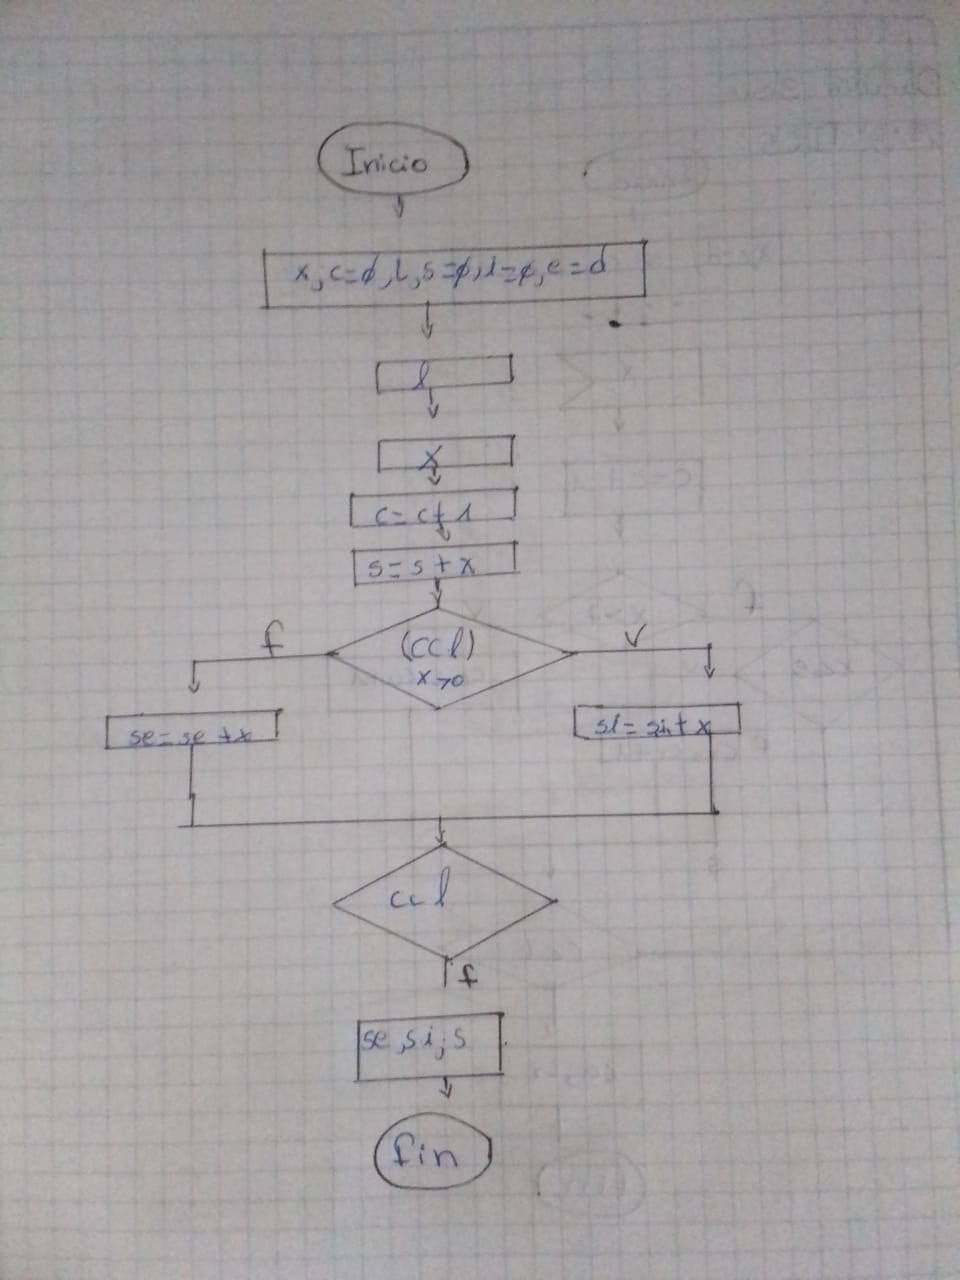 Inicio
x, c=ϕ, l, s=ϕ, i=ϕ, e=ϕ
l
x
c=c+1
s=s+x
f
(c<l)
x>0
V
se=se+x
si=si+x
c<l
f
se, si, s
fin